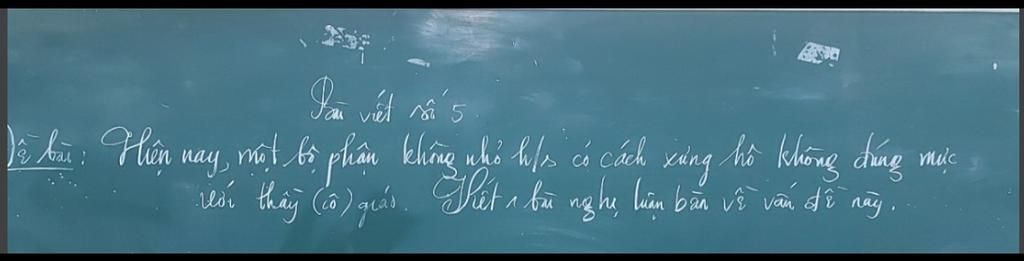 Bài viết số 5
Đề bài: Hiện nay, một bộ phận không nhỏ h/s có cách xưng hô không đúng mực
với thầy (cô) giáo. Viết 1 bài nghị luận bàn về vấn đề này.